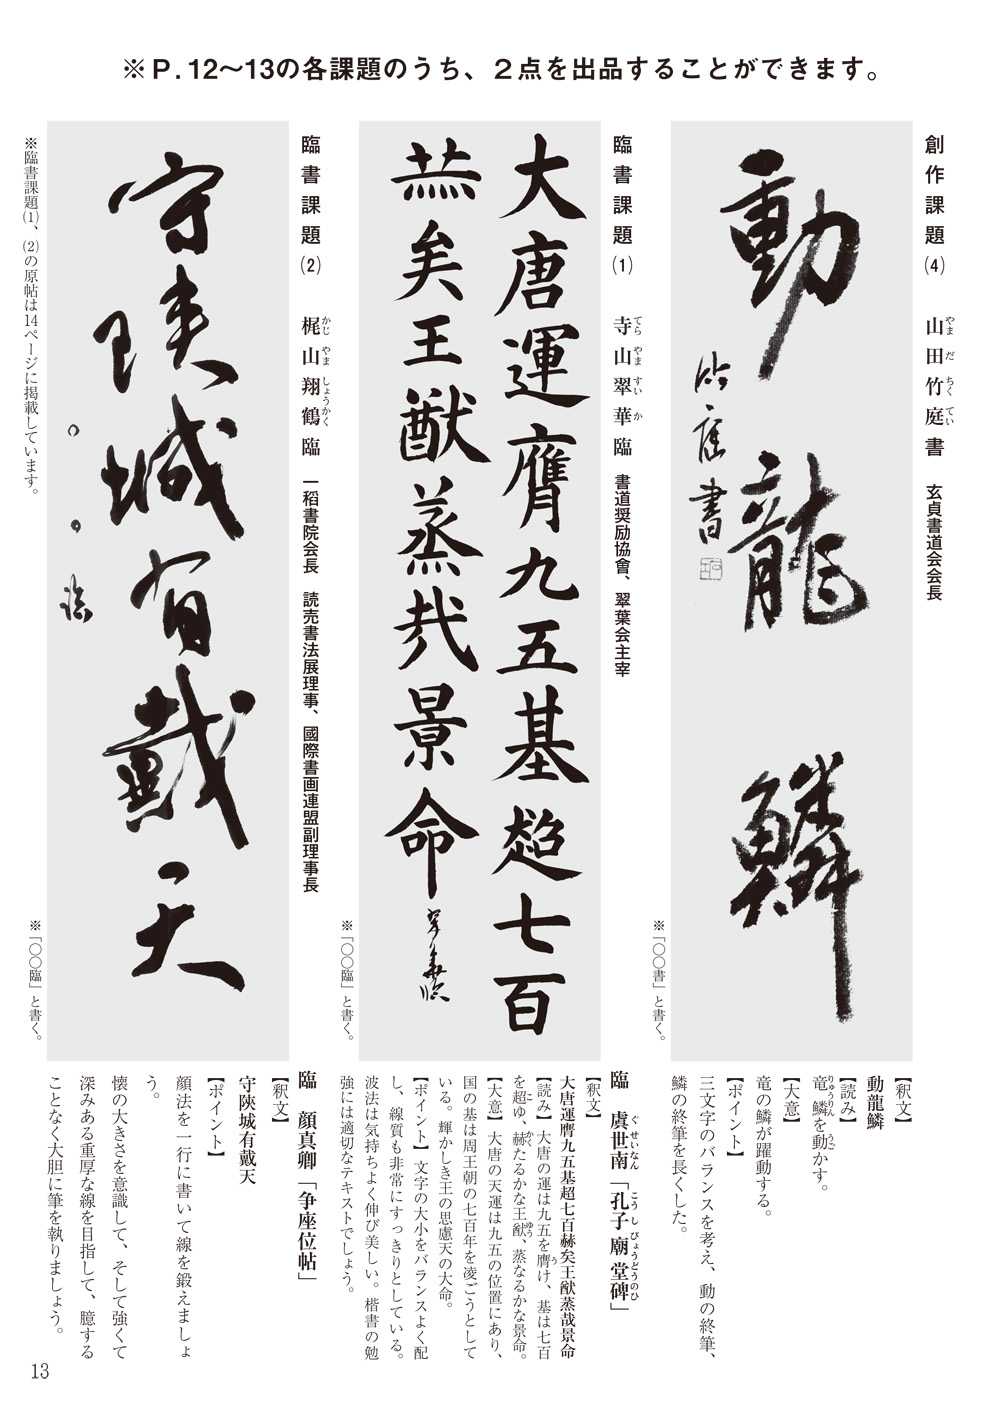 ※P.12〜13の各課題のうち、2点を出品することができます。
創作課題(4) 山田竹庭書 玄貞書道会会長
やま だ ちく てい
動龍鱗
竹庭書
※「〇〇書」と書く。
【釈文】
動龍鱗
【読み】
竜鱗を動かす。
りゅうりん うご
【大意】
竜の鱗が躍動する。
【ポイント】
三文字のバランスを考え、動の終筆、
鱗の終筆を長くした。
臨書課題(1) 寺山翠華臨 書道奨励協會、翠葉会主宰
てら やま すい か
大唐運膺九五基超七百
赫矣王猷蒸哉景命
翠華臨
※「〇〇臨」と書く。
臨 虞世南「孔子廟堂碑」
ぐ せいなん こう し びょうどうのひ
【釈文】
大唐運膺九五基超七百赫矣王猷蒸哉景命
【読み】大唐の運は九五を膺け、基は七百
う
を超ゆ、赫たるかな王猷、蒸なるかな景命。
こ かく ゆう
【大意】大唐の天運は九五の位置にあり、
国の基は周王朝の七百年を凌ごうとして
いる。輝かしき王の思慮天の大命。
【ポイント】文字の大小をバランスよく配
し、線質も非常にすっきりとしている。
波法は気持ちよく伸び美しい。楷書の勉
強には適切なテキストでしょう。
臨書課題(2) 梶山翔鶴臨 一稻書院会長 読売書法展理事、國際書画連盟副理事長
かじ やま しょうかく
守陝城有戴天
〇〇臨
※「〇〇臨」と書く。
※臨書課題(1)、(2)の原帖は14ページに掲載しています。
臨 顔真卿「争座位帖」
【釈文】
守陝城有戴天
【ポイント】
顔法を一行に書いて線を鍛えましょ
う。
懐の大きさを意識して、そして強くて
深みある重厚な線を目指して、臆する
ことなく大胆に筆を執りましょう。
13